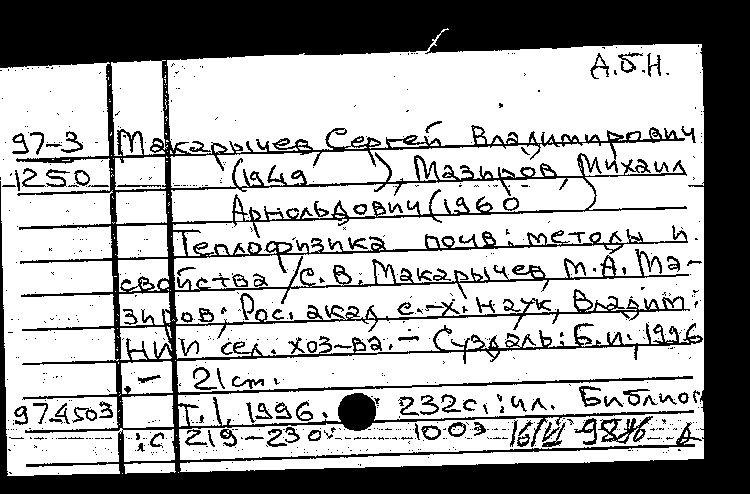 А.Б.Н.
97-3 Макарычев, Сергей Владимирович
1250 (1949 ), Мазиров, Михаил
Арнольдович (1960 )
Теплофизика почв: методы и
свойства / С.В. Макарычев, М.А. Ма-
зиров; Рос. акад. с.-х. наук, Владим.
НИИ сел. хоз-ва. - Суздаль: Б.и., 1996
. - 21 cm.
97.4503 Т. 1, 1996. 232с.: ил. Библиог
: с 219-230. 100э 16/VI